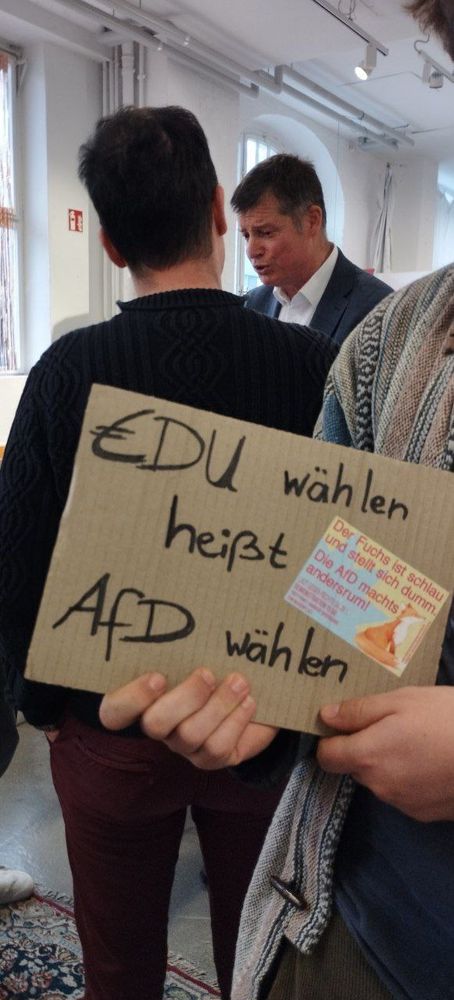 €DU wählen
heißt
AfD wählen
Der Fuchs ist schlau
und stellt sich dumm.
Die AfD machts
andersrum!